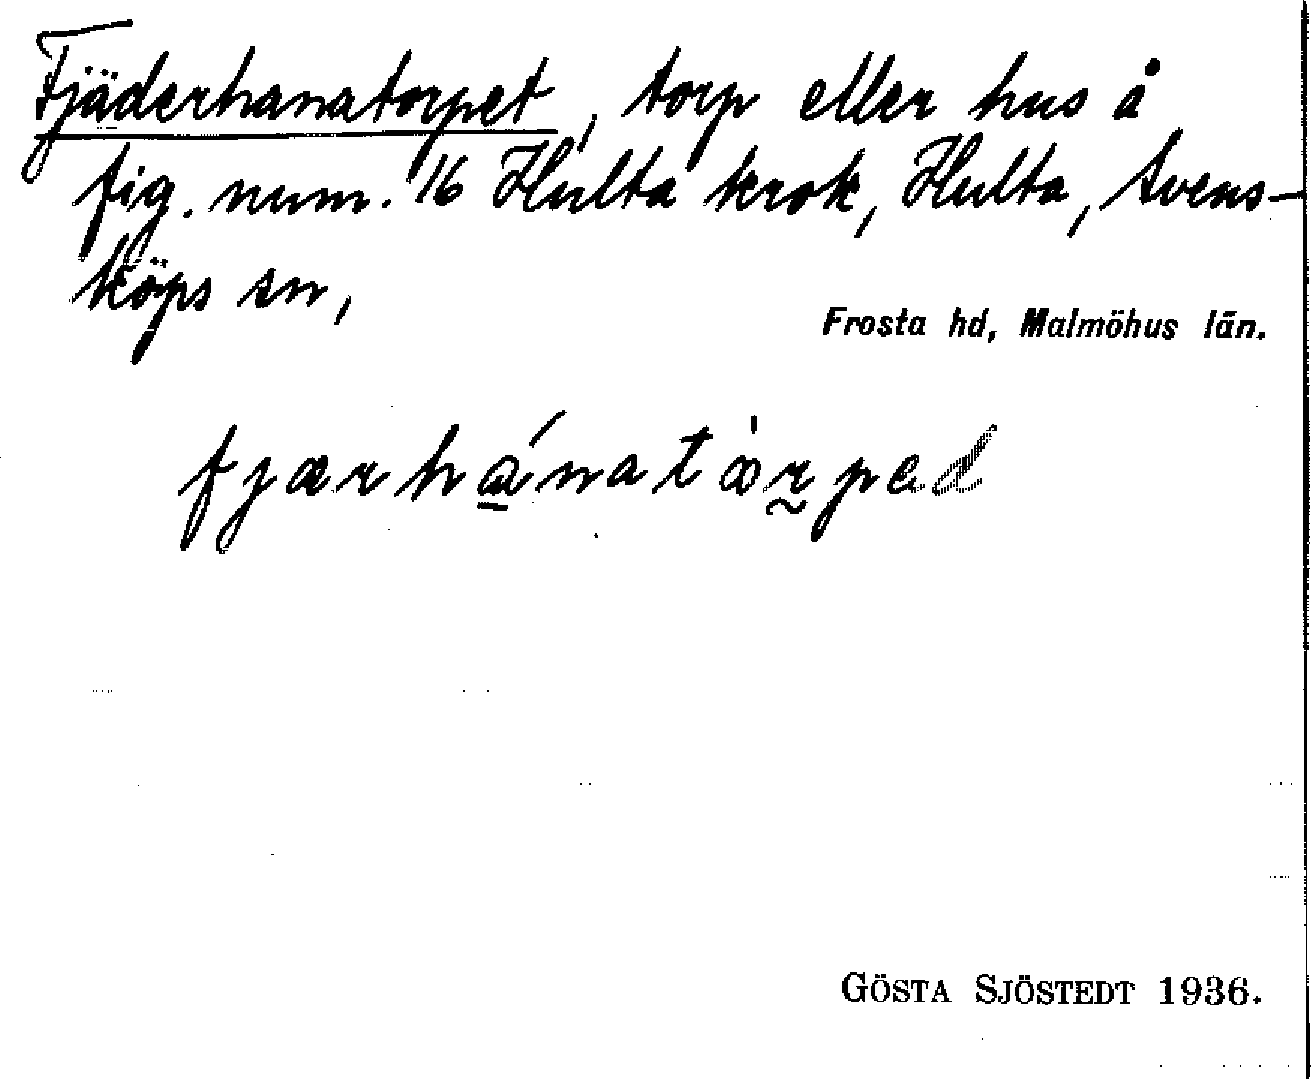 Fjäderhanatorpet, torp eller hus å
fig. num. 16 Hulta krok, Hulta, Svens-
köps sn,
Frosta hd, Malmöhus län.
fjærhánatȯrped
GÖSTA SJÖSTEDT 1936.